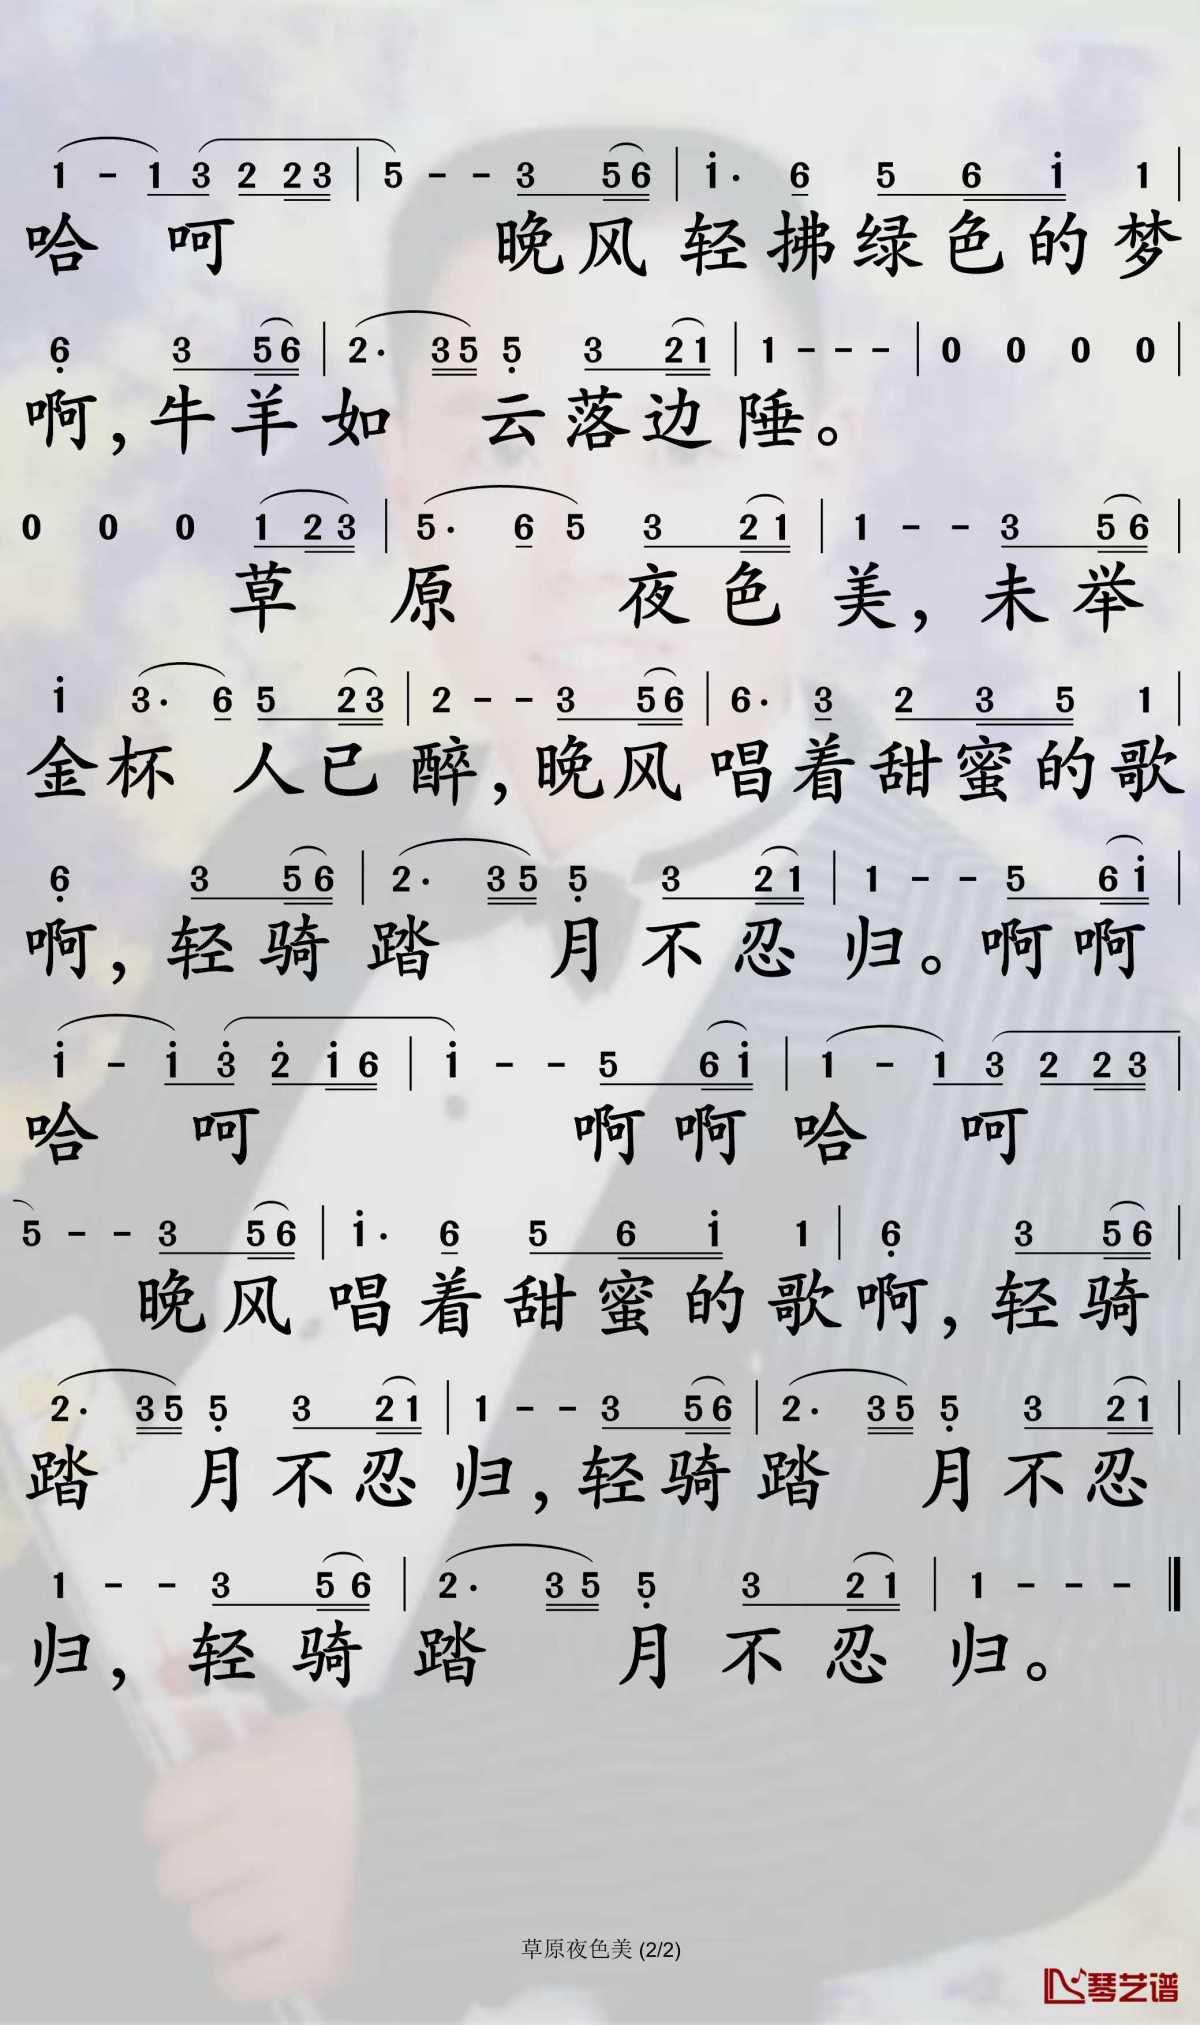 1 - 1 3 2 2 3 | 5 - - 3 5 6 | i · 6 5 6 i 1 |
哈 呵 晚 风 轻 拂 绿 色 的 梦
6̣ 3 5 6 | 2 · 3 5 5̣ 3 2 1 | 1 - - - | 0 0 0 0 |
啊, 牛 羊 如 云 落 边 陲。
0 0 0 1 2 3 | 5 · 6 5 3 2 1 | 1 - - 3 5 6 |
草 原 夜 色 美, 未 举
i 3 · 6 5 2 3 | 2 - - 3 5 6 | 6 · 3 2 3 5 1 |
金 杯 人 已 醉, 晚 风 唱 着 甜 蜜 的 歌
6̣ 3 5 6 | 2 · 3 5 5̣ 3 2 1 | 1 - - 5 6 i |
啊, 轻 骑 踏 月 不 忍 归。 啊 啊
i - i 3̇ 2̇ i 6 | i - - 5 6 i | 1 - 1 3 2 2 3 |
哈 呵 啊 啊 哈 呵
5 - - 3 5 6 | i · 6 5 6 i 1 | 6̣ 3 5 6 |
晚 风 唱 着 甜 蜜 的 歌 啊, 轻 骑
2 · 3 5 5̣ 3 2 1 | 1 - - 3 5 6 | 2 · 3 5 5̣ 3 2 1 |
踏 月 不 忍 归, 轻 骑 踏 月 不 忍
1 - - 3 5 6 | 2 · 3 5 5̣ 3 2 1 | 1 - - - ‖
归, 轻 骑 踏 月 不 忍 归。
草原夜色美 (2/2)
琴艺谱